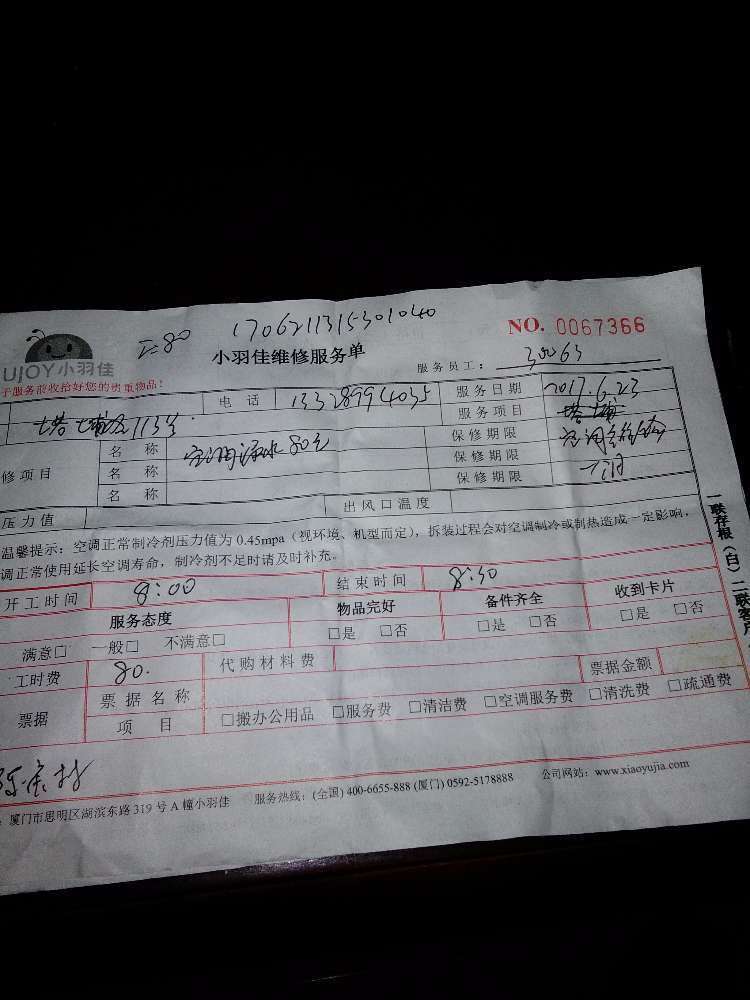 I=80 1706211315301040
UJOY小羽佳
小羽佳维修服务单
NO. 0067366
服务员工： 30063
于服务前收拾好您的贵重物品！
电 话 13328994035 服务日期 2017.6.23
塔埔 113号 服务项目
修项目 名 称 空调漏水80元 保修期限
名 称 保修期限
名 称 保修期限
压力值 出风口温度
温馨提示：空调正常制冷剂压力值为 0.45mpa（视环境、机型而定），拆装过程会对空调制冷或制热造成一定影响，
调正常使用延长空调寿命，制冷剂不足时请及时补充。
开工时间 8:00 结束时间 8:30
服务态度 物品完好 备件齐全 收到卡片
满意□ 一般□ 不满意□ □是 □否 □是 □否 □是 □否
工时费 80. 代购材料费 票据金额
票据 票据名称
项 目 □搬办公用品 □服务费 □清洁费 □空调服务费 □清洗费 □疏通费
：厦门市思明区湖滨东路 319 号 A 幢小羽佳 服务热线：(全国) 400-6655-888 (厦门) 0592-5178888 公司网站：www.xiaoyujia.com
一联存根（白）二联客户